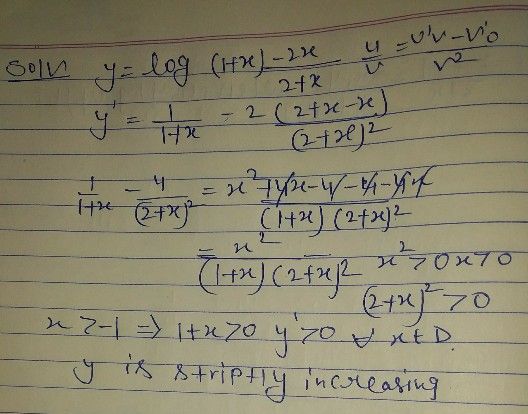 Soln. y = log (1+x) - 2x/(2+x) u/v = u'v - v'u/v²
y' = 1/(1+x) - 2 (2+x-x)/(2+x)²
1/(1+x) - 4/(2+x)² = x²+4x-4-4-4x/(1+x)(2+x)²
= x²/(1+x)(2+x)² x²>0 x>0
(2+x)²>0
x>-1 ⇒ 1+x>0 y'>0 ∀ x∈D.
y is striptly increasing